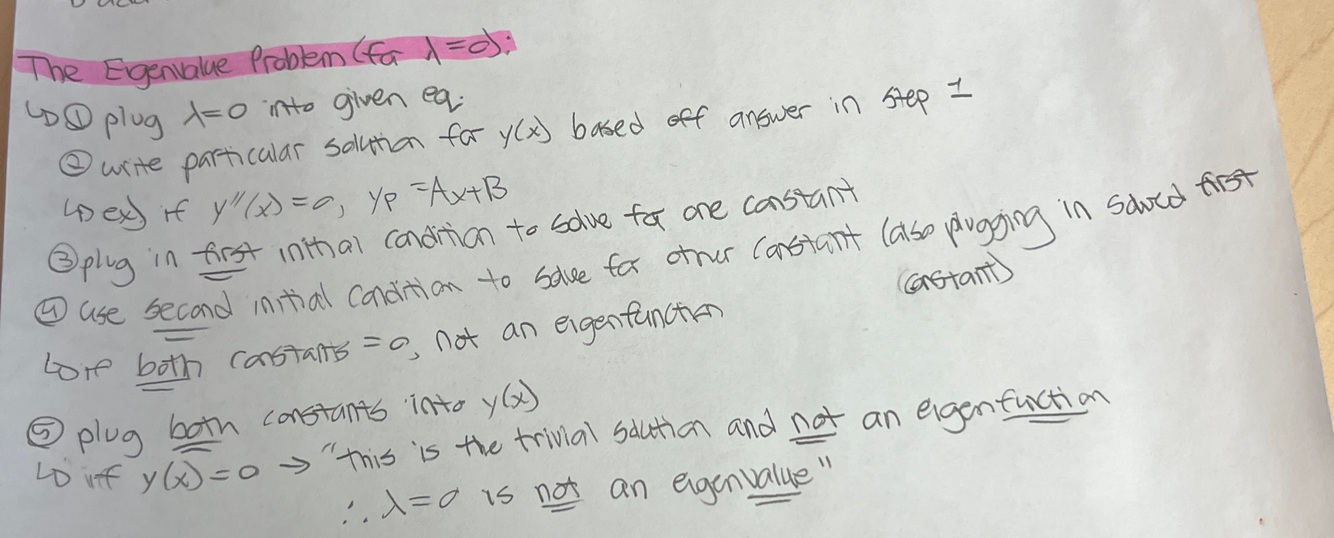 The Eigenvalue Problem (for λ=0):
↳ ① plug λ=0 into given eq.
② write particular solution for y(x) based off answer in step 1
↳ ex) if y''(x)=0, yp=Ax+B
③ plug in first initial condition to solve for one constant
④ use second initial condition to solve for other constant (also plugging in solved first
constant)
↳ if both constants = 0, not an eigenfunction
⑤ plug both constants into y(x)
↳ iff y(x)=0 → "this is the trivial solution and not an eigenfunction
∴ λ=0 is not an eigenvalue"